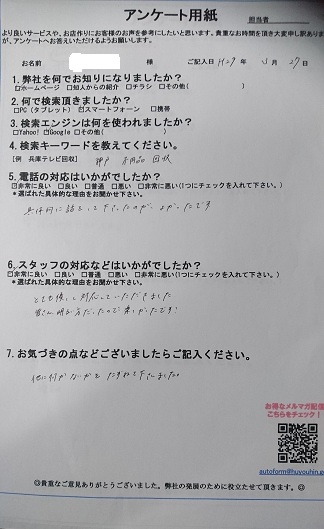 アンケート用紙
担当者
より良いサービスや、お店作りにお客様のお声を参考にしたいと思います。貴重なお時間を頂き大変申し訳ありま
が、アンケートへお答えいただけるようお願いします。
お名前 様 ご記入日 H29 年 5 月 27 日
1.弊社を何でお知りになりましたか?
☑ホームページ □知人からの紹介 □チラシ □その他( )
2.何で検索頂きましたか?
□PC (タブレット) ☑スマートフォーン □携帯
3.検索エンジンは何を使われましたか?
□Yahoo! ☑Google □その他( )
4.検索キーワードを教えてください。
[例 兵庫テレビ回収] 神戸 不用品 回収
5.電話の対応はいかがでしたか?
☑非常に良い □良い □普通 □悪い □非常に悪い(1つにチェックを入れて下さい。)
*選ばれた具体的な理由をお聞かせ下さい。
具体的に話をして下さったのが、よかったです
6.スタッフの対応などはいかがでしたか?
☑非常に良い □良い □普通 □悪い □非常に悪い(1つにチェックを入れて下さい。)
*選ばれた具体的な理由をお聞かせ下さい。
とても優しく対応していただきました
皆さん明るい方だったので楽しかったです!
7.お気づきの点などございましたらご記入ください。
他に何かないかと たずねて下さいました。
お得なメルマガ配信
こちらをチェック!
autoform@huyouhin.
◎貴重なご意見ありがとうございました。弊社の発展のために役立たせて頂きます。◎